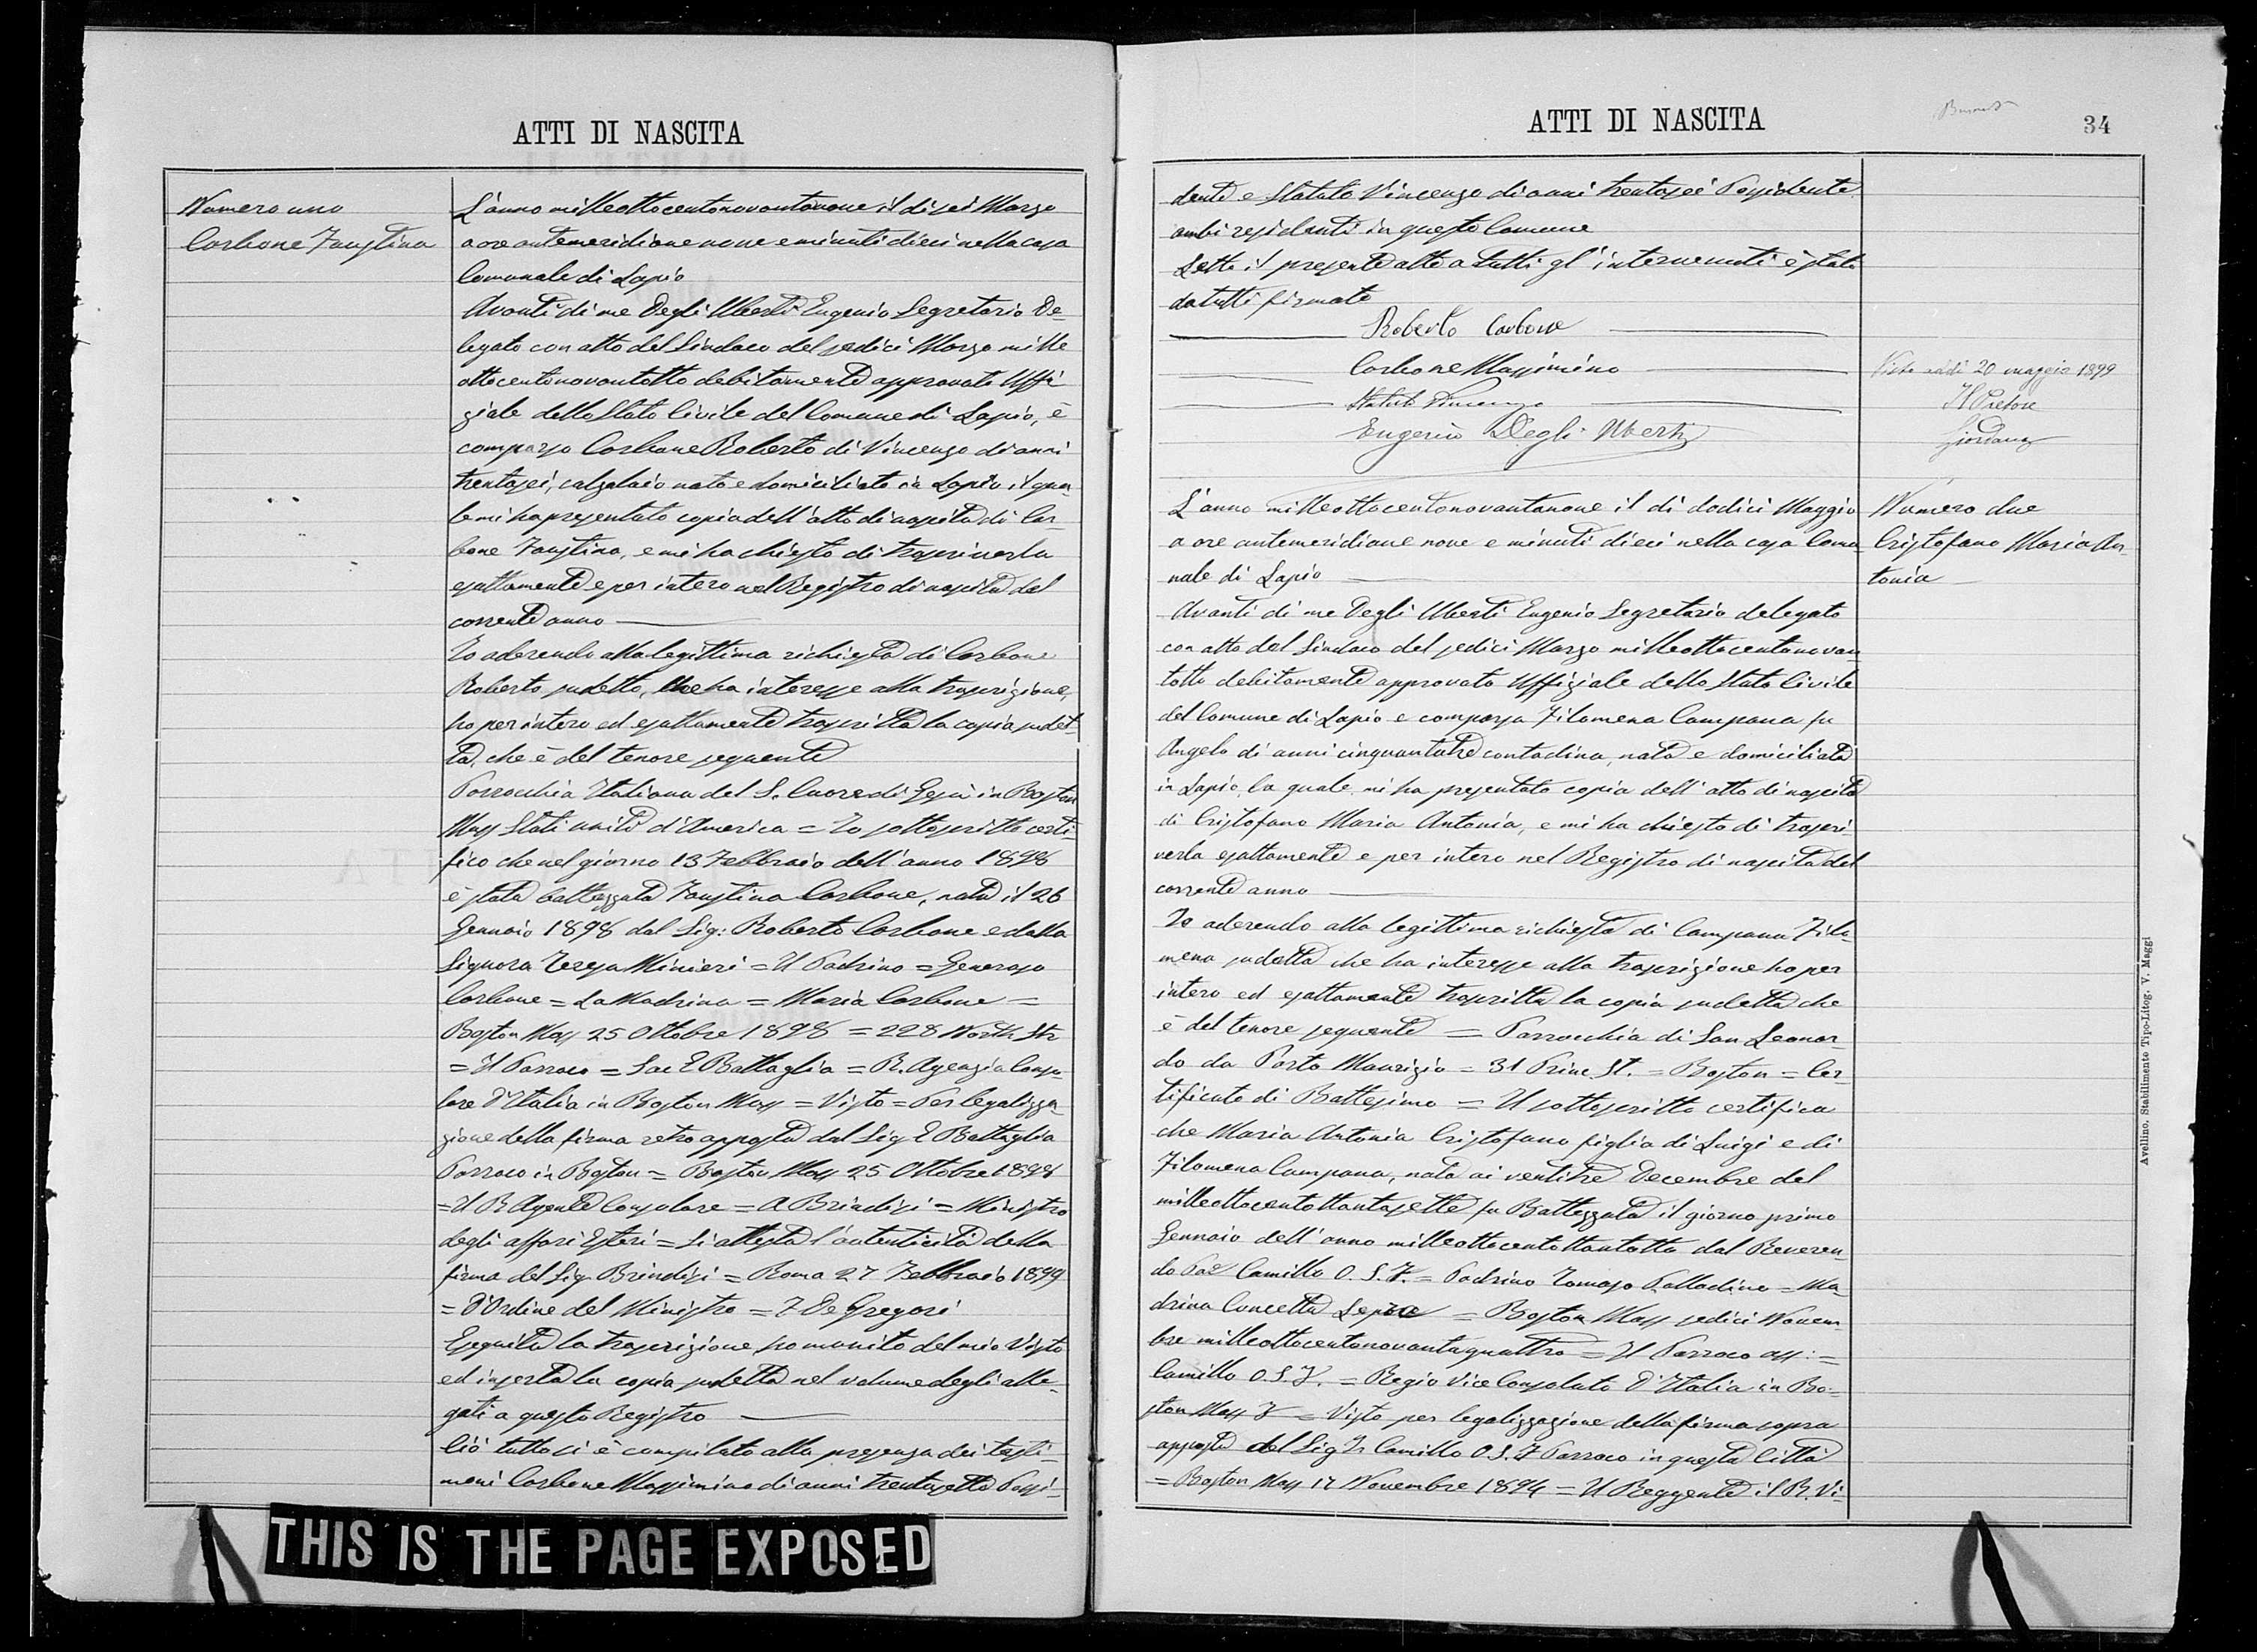 ATTI DI NASCITA
Numero uno
Carbone Faustina
L'anno milleottocentonovantanove il di sei Marzo
a ore antemeridiane nove e minuti dieci nella casa
Comunale di Lapio
Avanti di me Degli Uberti Eugenio Segretario De-
legato con atto del Sindaco del sedici Marzo mille
ottocentonovantotto debitamente approvato Uffi
ziale dello Stato Civile del Comune di Lapio, è
comparso Carbone Roberto di Vincenzo di anni
trentasei, calzolaio nato e domiciliato in Lapio il qua-
le mi ha presentato copia dell'atto di nascita di Car-
bone Faustina, e mi ha chiesto di trascriverla
esattamente e per intero nel Registro di nascita del
corrente anno
Io aderendo alla legittima richiesta di Carbone
Roberto sudetto, che ha interesse alla trascrizione,
ho per intero ed esattamente trascritta la copia sudet-
ta, che è del tenore seguente
Parrocchia Italiana del S. Cuore di Gesù in Boston
Mass Stati uniti d'America = Io sottoscritto certi-
fico che nel giorno 13 Febbraio dell'anno 1898
è stata battezzata Faustina Carbone, nata il 26
Gennaio 1898 dal Sig: Roberto Carbone e dalla
Signora Teresa Minieri = Il Padrino = Generoso
Carbone = La Madrina = Maria Carbone =
Boston Mass 25 Ottobre 1898 = 228 North Str
= Il Parroco = Sac E Battaglia = R. Agenzia Conso-
lare d'Italia in Boston Mass = Visto = Per legalizza-
zione della firma retro apposta dal Sig E Battaglia
Parroco in Boston = Boston Mass 25 Ottobre 1898
= Il R Agente Consolare = A Brindisi = Ministro
degli affari Esteri = Si attesta l'autenticità della
firma del Sig. Brindisi = Roma 27 Febbraio 1899
= D'Ordine del Ministro = F De Gregori
Eseguita la trascrizione, ho munito del mio Visto
ed inserta la copia sudetta nel volume degli alle-
gati a questo Registro
Ciò tutto si è compilato alla presenza dei testi-
moni Carbone Massimino di anni trentasette Possi-
THIS IS THE PAGE EXPOSED
ATTI DI NASCITA
34
dente e Statuto Vincenzo di anni trentasei Possidente
ambi residenti in questo Comune
Letto il presente atto a tutti gl'intervenuti è stato
da tutti firmato
Roberto Carbone
Carbone Massimino
Statuto Vincenzo
Eugenio Degli Uberti
Visto addì 20 maggio 1899
Il Pretore
Giordano
Numero due
Cristofano Maria An-
tonia
L'anno milleottocentonovantanove il di dodici Maggio
a ore antemeridiane nove e minuti dieci nella casa Comu
nale di Lapio
Avanti di me Degli Uberti Eugenio Segretario delegato
con atto del Sindaco del sedici Marzo milleottocentonovan
totto debitamente approvato Uffiziale dello Stato Civile
del Comune di Lapio è comparsa Filomena Campana fu
Angelo di anni cinquantatre contadina, nata e domiciliata
in Lapio, la quale mi ha presentato copia dell'atto di nascita
di Cristofano Maria Antonia, e mi ha chiesto di trascri-
verla esattamente e per intero nel Registro di nascita del
corrente anno
Io aderendo alla legittima richiesta di Campana Filo-
mena sudetta che ha interesse alla trascrizione ho per
intero ed esattamente trascritta la copia sudetta che
è del tenore seguente = Parrocchia di San Leonar-
do da Porto Maurizio = 31 Prine St. = Boston = Cer-
tificato di Battesimo = Il sottoscritto certifica
che Maria Antonia Cristofano figlia di Luigi e di
Filomena Campana, nata ai ventitre Decembre del
milleottocentottantasette fu Battezzata il giorno primo
Gennaio dell'anno milleottocentottantotto dal Reveren-
do Camillo O. S. F. = Padrino Tomaso Palladino = Ma-
drina Concetta = Boston Mass sedici Novem-
bre milleottocentonovantaquattro = Il Parroco ass: =
Camillo O. S. F. = Regio Vice Consolato d'Italia in Bo-
ston Mass = Visto per legalizzazione della firma sopra
apposta del Sig Camillo O. S. F Parroco in questa Città
= Boston Mass 17 Novembre 1894 = Il Reggente il R. Vi-
Avellino, Stabilimento Tipo-Litog. V. Maggi